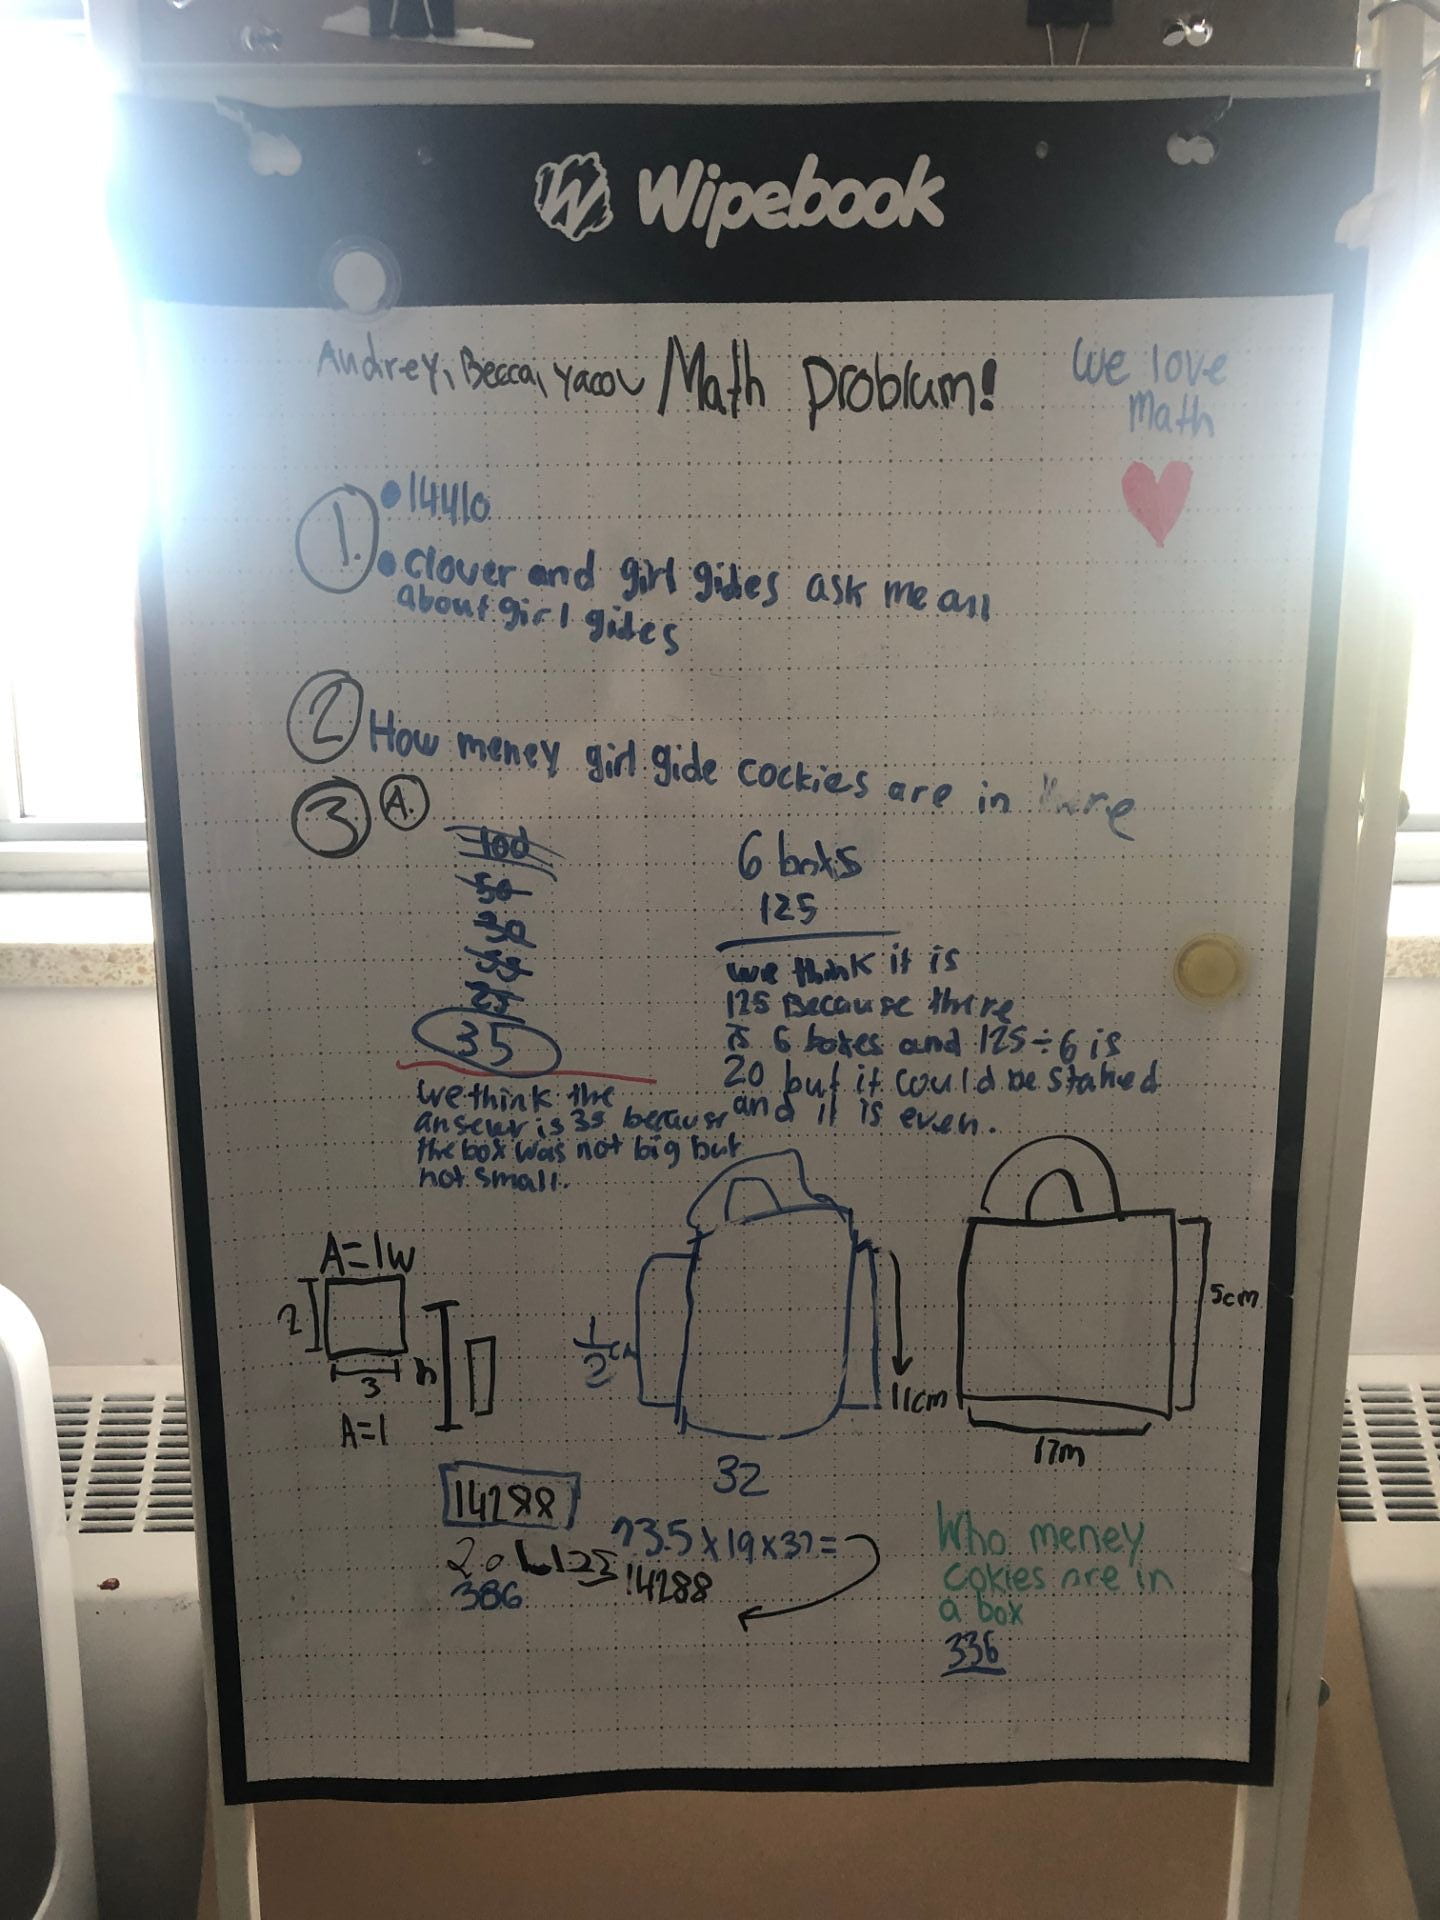 Wipebook
Audrey, Becca, Yacov Math problum!
We love
Math
1.
14410
clover and girl gides ask me all
about girl gides
2
How meney girl gide cockies are in here
3 A.
100
50
35
we think the
answer is 35 because
the box was not big but
not small.
6 boxs
125
we think it is
125 Because there
is 6 boxes and 125÷6 is
20 but it could be staked
and it is even.
A=lw
2
3
h
A=l
1/2 cm
11cm
32
5cm
17m
14288
386
73.5x19x32=
14288
Who meney
cokies are in
a box
336